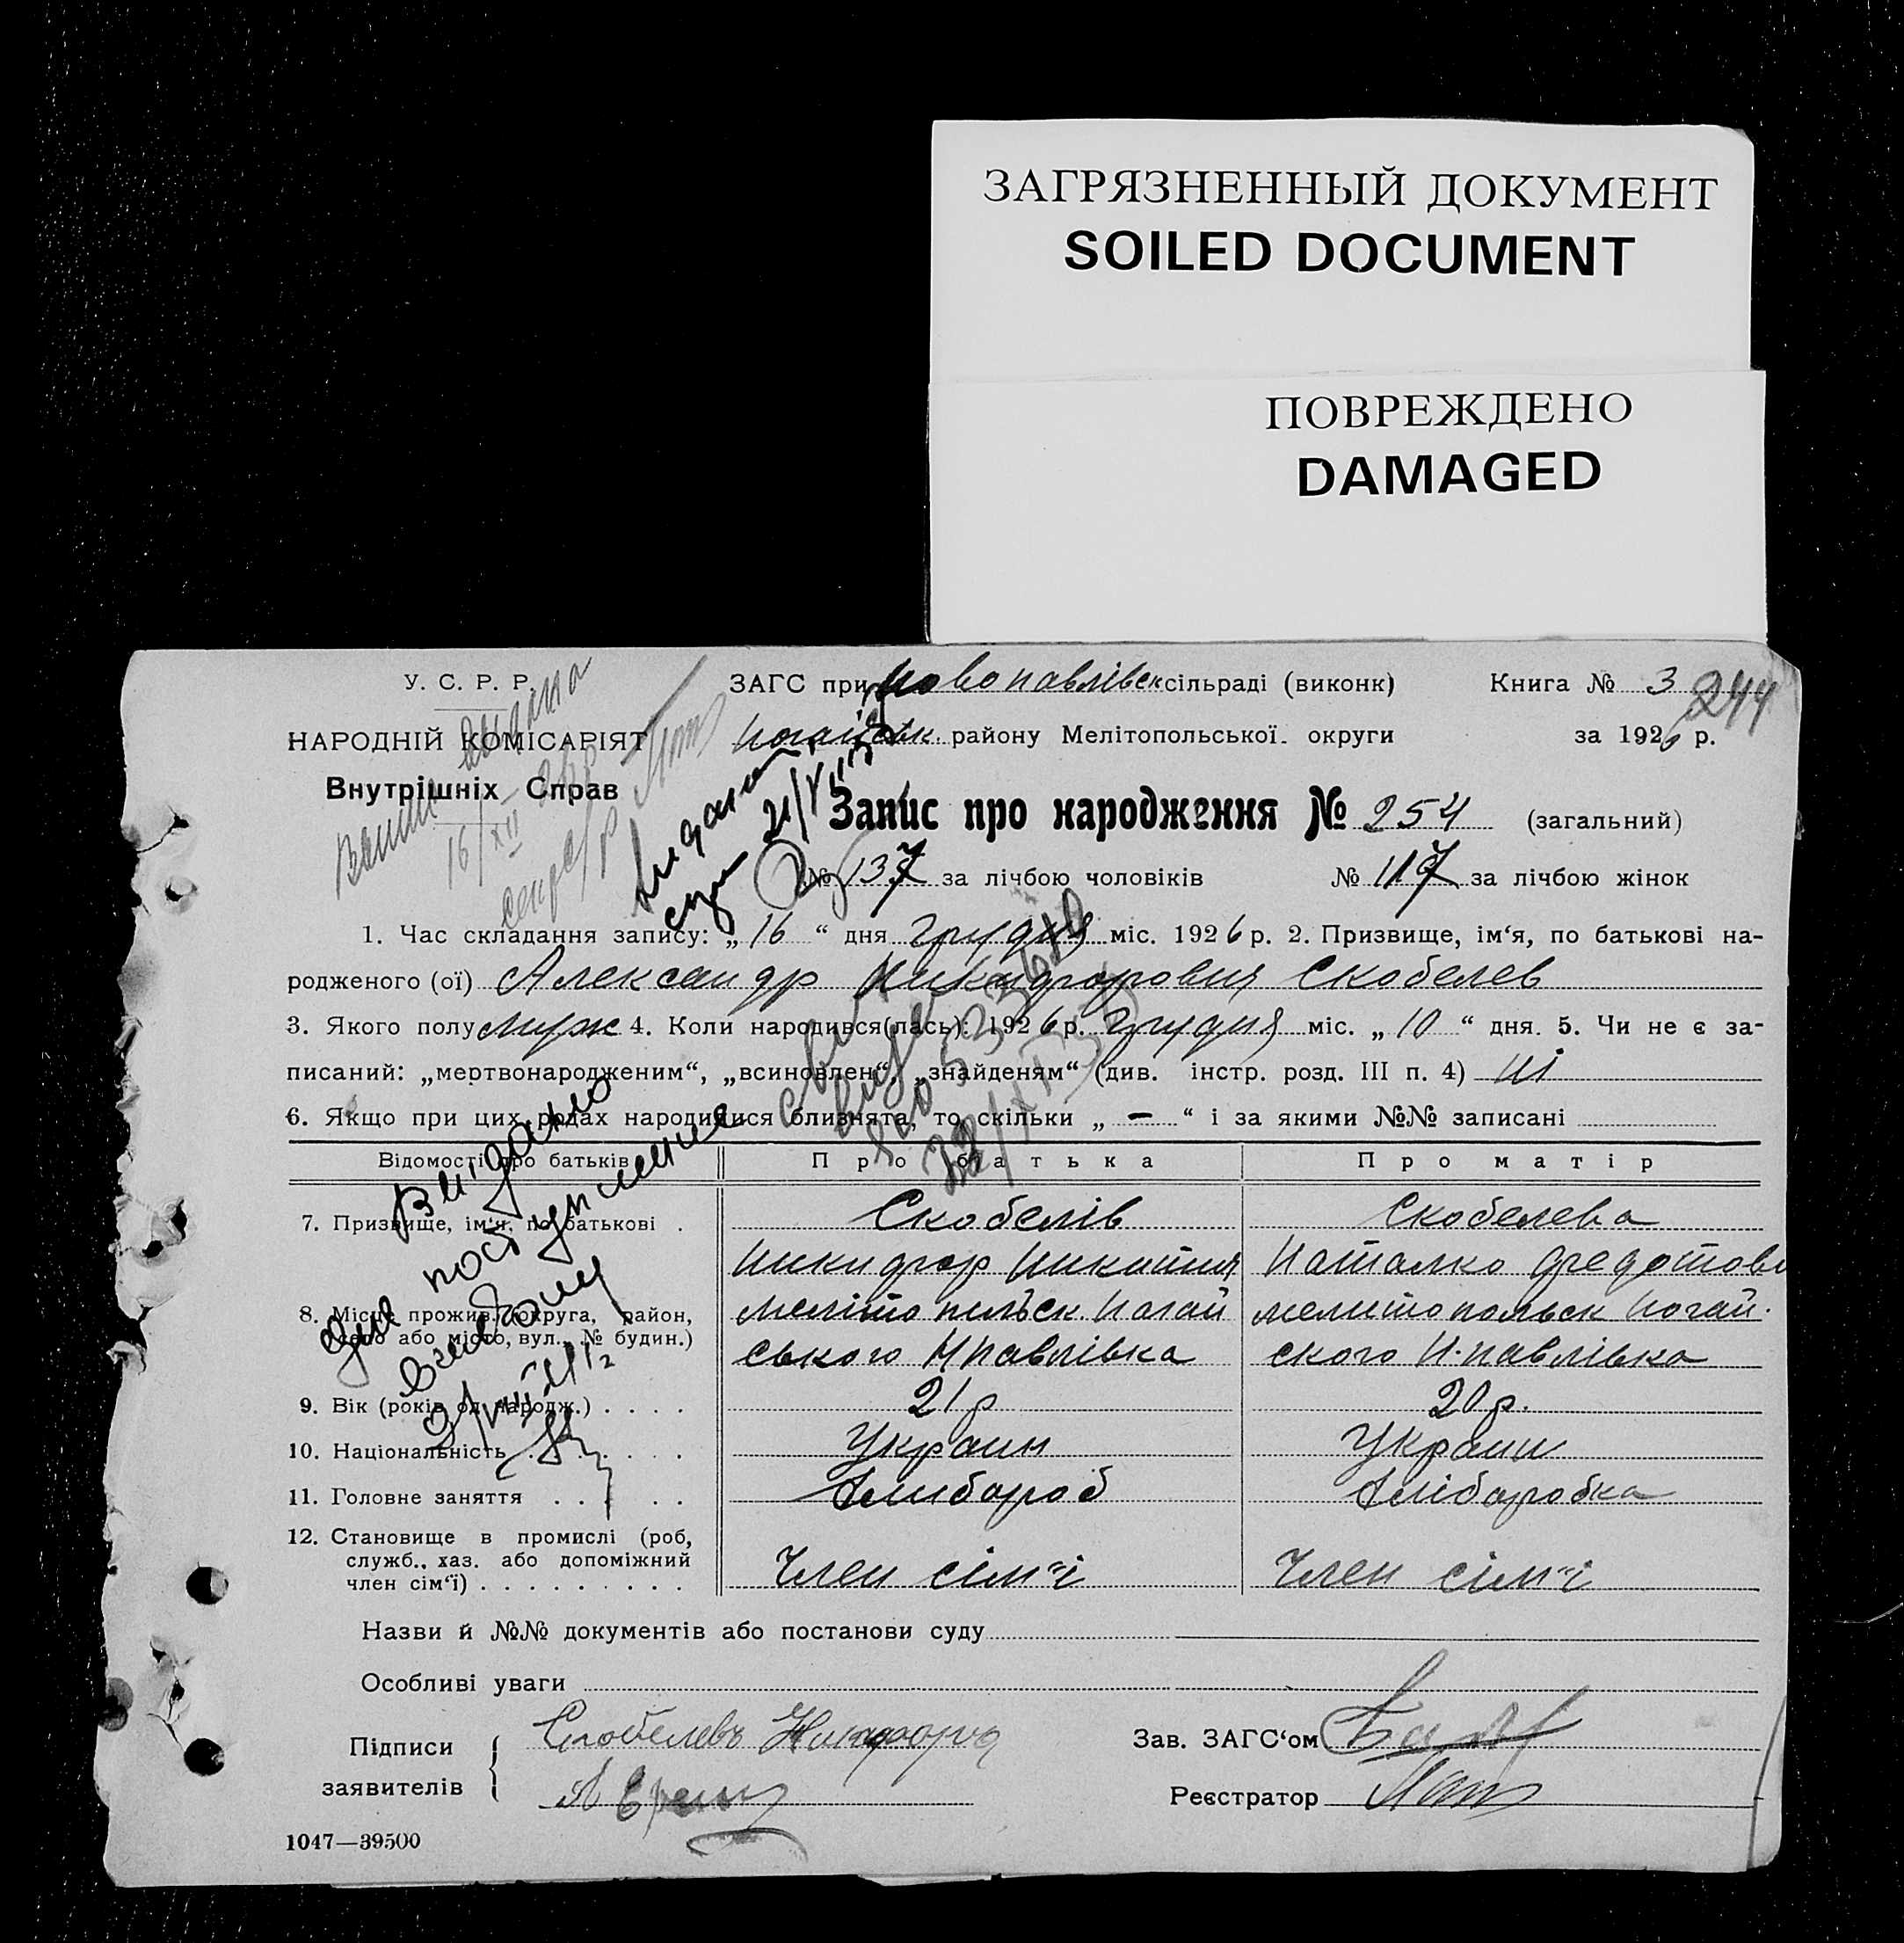 ЗАГРЯЗНЕННЫЙ ДОКУМЕНТ
SOILED DOCUMENT
ПОВРЕЖДЕНО
DAMAGED
У. С. Р. Р.
НАРОДНІЙ КОМІСАРІЯТ
Внутрішніх Справ
ЗАГС при Новопавлівськ сільраді (виконк) Книга № 3
244
Ногайськ. району Мелітопольської округи за 1926 р.
Запис про народження № 254 (загальний)
№ 137 за лічбою чоловіків № 117 за лічбою жінок
1. Час складання запису: „16“ дня грудня міс. 1926 р. 2. Призвище, ім‘я, по батькові на-
родженого (ої) Александр Никифорович Скобелев
3. Якого полу муж 4. Коли народився(лась): 1926 р. грудня міс. „10“ дня. 5. Чи не є за-
писаний: „мертвонародженим“, „всиновлен“, „знайденям“ (див. інстр. розд. III п. 4) ні
6. Якщо при цих родах народилися близнята, то скільки „—“ і за якими №№ записані
Відомості про батьків Про батька Про матір
7. Призвище, ім‘я, по батькові . Скобелів Скобелева
Никифор Никитич Наталко Федотовн
8. Місце прожив. (округа, район, Мелітопильск Ногай мелитопольск Ногай.
село або місто, вул., № будин.) ського Нпавлівка ского Н.павлівка
9. Вік (років од народж.) . . . . 21 р 20 р.
10. Національність . . . . . Украин Украин
11. Головне заняття . . . . . Хлибороб Хліборобка
12. Становище в промислі (роб,
служб., хаз. або допоміжний
член сім‘ї) . . . . . . . . . Член сімʼі Член сімʼі
Назви й №№ документів або постанови суду
Особливі уваги
Підписи
заявителів
Скобелевъ Никифор
Зав. ЗАГС‘ом
Реєстратор
1047—39500
Видано
для поступления